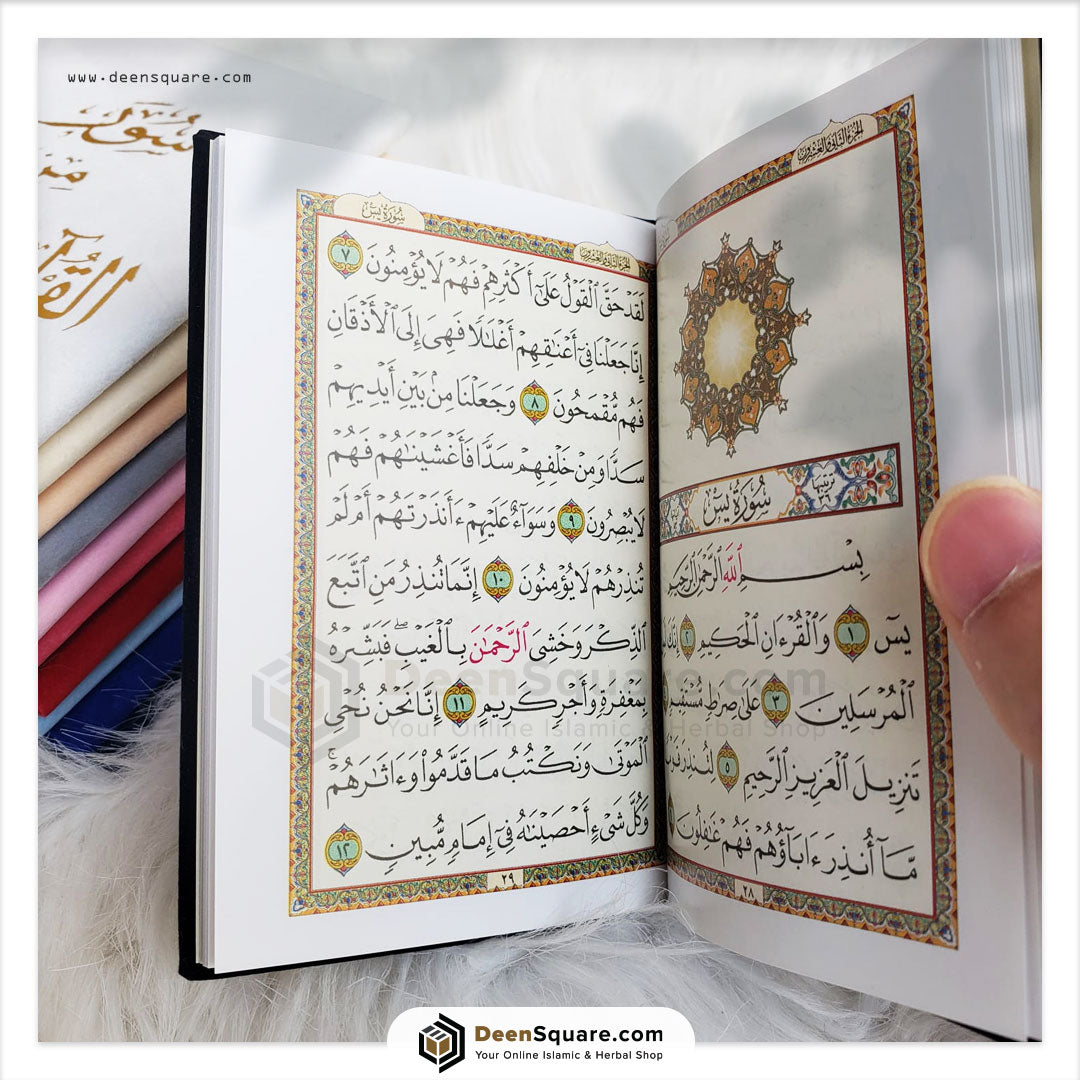 www.deensquare.com
سور
من
القرآن
الجزء الثاني والعشرون
سُورَةُ يسٓ
بِسْمِ ٱللَّهِ ٱلرَّحْمَٰنِ ٱلرَّحِيمِ
يسٓ ١ وَٱلْقُرْءَانِ ٱلْحَكِيمِ ٢
ٱلْمُرْسَلِينَ ٣ عَلَىٰ صِرَٰطٍ مُّسْتَقِيمٍ
تَنزِيلَ ٱلْعَزِيزِ ٱلرَّحِيمِ ٥ لِتُنذِرَ
مَّآ أُنذِرَ ءَابَآؤُهُمْ فَهُمْ غَٰفِلُونَ
٢٨
سُورَةُ يسٓ
الجزء الثاني والعشرون
لَقَدْ حَقَّ ٱلْقَوْلُ عَلَىٰٓ أَكْثَرِهِمْ فَهُمْ لَا يُؤْمِنُونَ ٧
إِنَّا جَعَلْنَا فِىٓ أَعْنَٰقِهِمْ أَغْلَٰلًا فَهِىَ إِلَى ٱلْأَذْقَانِ
فَهُم مُّقْمَحُونَ ٨ وَجَعَلْنَا مِنۢ بَيْنِ أَيْدِيهِمْ
سَدًّا وَمِنْ خَلْفِهِمْ سَدًّا فَأَغْشَيْنَٰهُمْ فَهُمْ
لَا يُبْصِرُونَ ٩ وَسَوَآءٌ عَلَيْهِمْ ءَأَنذَرْتَهُمْ أَمْ لَمْ
تُنذِرْهُمْ لَا يُؤْمِنُونَ ١٠ إِنَّمَا تُنذِرُ مَنِ ٱتَّبَعَ
ٱلذِّكْرَ وَخَشِىَ ٱلرَّحْمَٰنَ بِٱلْغَيْبِ ۖ فَبَشِّرْهُ
بِمَغْفِرَةٍ وَأَجْرٍ كَرِيمٍ ١١ إِنَّا نَحْنُ نُحْىِ
ٱلْمَوْتَىٰ وَنَكْتُبُ مَا قَدَّمُوا۟ وَءَاثَٰرَهُمْ ۚ
وَكُلَّ شَىْءٍ أَحْصَيْنَٰهُ فِىٓ إِمَامٍ مُّبِينٍ ١٢
٢٩
DeenSquare.com
Your Online Islamic & Herbal Shop
DeenSquare.com
Your Online Islamic & Herbal Shop